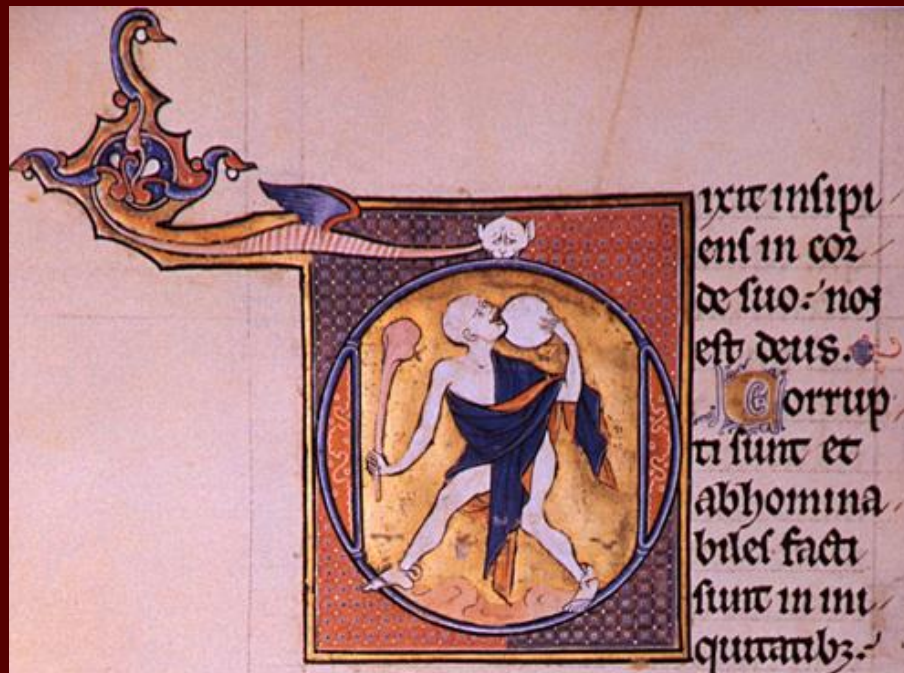 D ixit insipi
ens in cor
de suo: non
est deus.
Corrup
ti sunt et
abhomina
biles facti
sunt in ini
quitatibz.